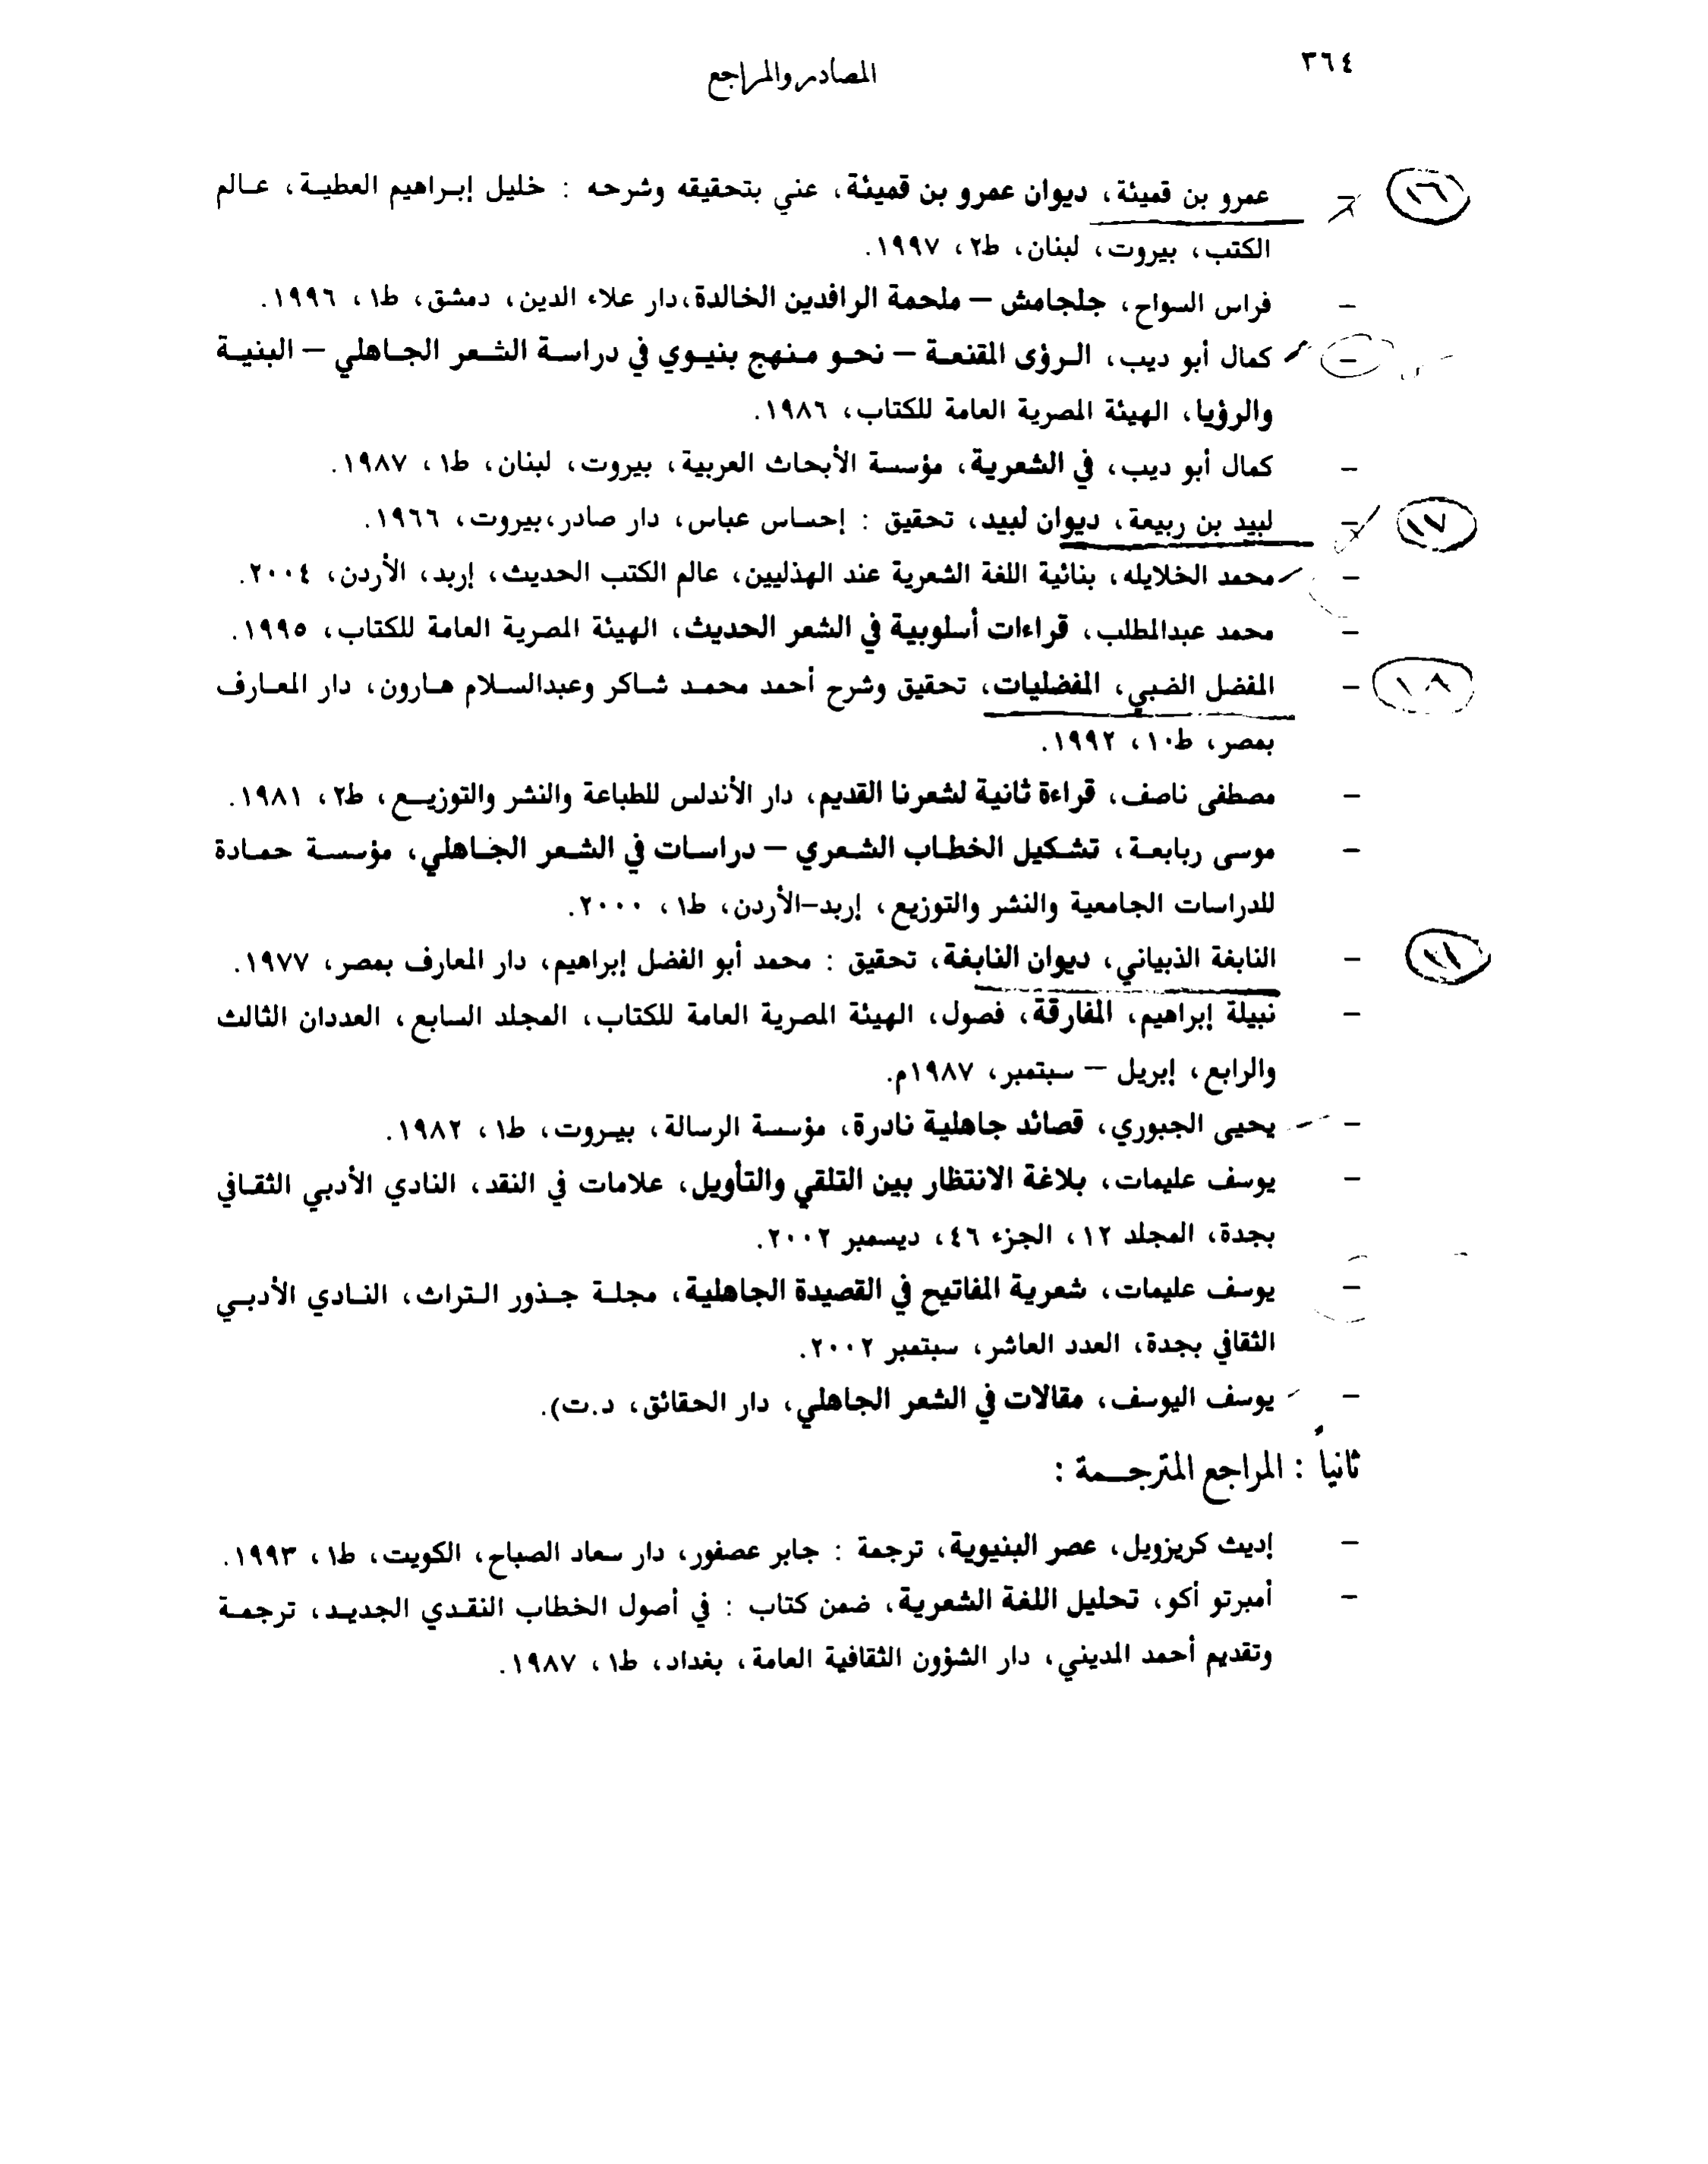 ٣٦٤
المصادر والمراجع
١٦ – عمرو بن قميئة، ديوان عمرو بن قميئة، عني بتحقيقه وشرحه : خليل إبراهيم العطية، عالم
الكتب، بيروت، لبنان، ط٢، ١٩٩٧.
– فراس السواح، جلجامش – ملحمة الرافدين الخالدة،دار علاء الدين، دمشق، ط١، ١٩٩٦.
– كمال أبو ديب، الرؤى المقنعة – نحو منهج بنيوي في دراسة الشعر الجاهلي – البنية
والرؤيا، الهيئة المصرية العامة للكتاب، ١٩٨٦.
– كمال أبو ديب، في الشعرية، مؤسسة الأبحاث العربية، بيروت، لبنان، ط١، ١٩٨٧.
١٧ – لبيد بن ربيعة، ديوان لبيد، تحقيق : إحساس عباس، دار صادر،بيروت، ١٩٦٦.
– محمد الخلايله، بنائية اللغة الشعرية عند الهذليين، عالم الكتب الحديث، إربد، الأردن، ٢٠٠٤.
– محمد عبدالمطلب، قراءات أسلوبية في الشعر الحديث، الهيئة المصرية العامة للكتاب، ١٩٩٥.
١٨ – المفضل الضبي، المفضليات، تحقيق وشرح أحمد محمد شاكر وعبدالسلام هارون، دار المعارف
بمصر، ط١٠، ١٩٩٢.
– مصطفى ناصف، قراءة ثانية لشعرنا القديم، دار الأندلس للطباعة والنشر والتوزيع، ط٢، ١٩٨١.
– موسى ربابعة، تشكيل الخطاب الشعري – دراسات في الشعر الجاهلي، مؤسسة حمادة
للدراسات الجامعية والنشر والتوزيع، إربد–الأردن، ط١، ٢٠٠٠.
– النابغة الذبياني، ديوان النابغة، تحقيق : محمد أبو الفضل إبراهيم، دار المعارف بمصر، ١٩٧٧.
– نبيلة إبراهيم، المفارقة، فصول، الهيئة المصرية العامة للكتاب، المجلد السابع، العددان الثالث
والرابع، إبريل – سبتمبر، ١٩٨٧م.
– يحيى الجبوري، قصائد جاهلية نادرة، مؤسسة الرسالة، بيروت، ط١، ١٩٨٢.
– يوسف عليمات، بلاغة الانتظار بين التلقي والتأويل، علامات في النقد، النادي الأدبي الثقافي
بجدة، المجلد ١٢، الجزء ٤٦، ديسمبر ٢٠٠٢.
– يوسف عليمات، شعرية المفاتيح في القصيدة الجاهلية، مجلة جذور التراث، النادي الأدبي
الثقافي بجدة، العدد العاشر، سبتمبر ٢٠٠٢.
– يوسف اليوسف، مقالات في الشعر الجاهلي، دار الحقائق، د.ت).
ثانياً : المراجع المترجمة :
– إديث كريزويل، عصر البنيوية، ترجمة : جابر عصفور، دار سعاد الصباح، الكويت، ط١، ١٩٩٣.
– أمبرتو أكو، تحليل اللغة الشعرية، ضمن كتاب : في أصول الخطاب النقدي الجديد، ترجمة
وتقديم أحمد المديني، دار الشؤون الثقافية العامة، بغداد، ط١، ١٩٨٧.